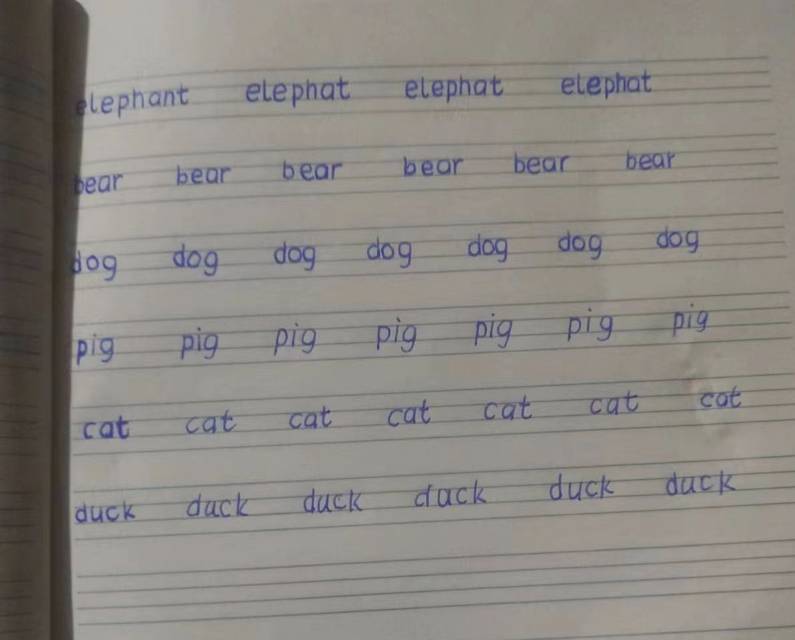 elephant elephat elephat elephat
bear bear bear bear bear bear
dog dog dog dog dog dog dog
pig pig pig pig pig pig pig
cat cat cat cat cat cat cat
duck duck duck duck duck duck